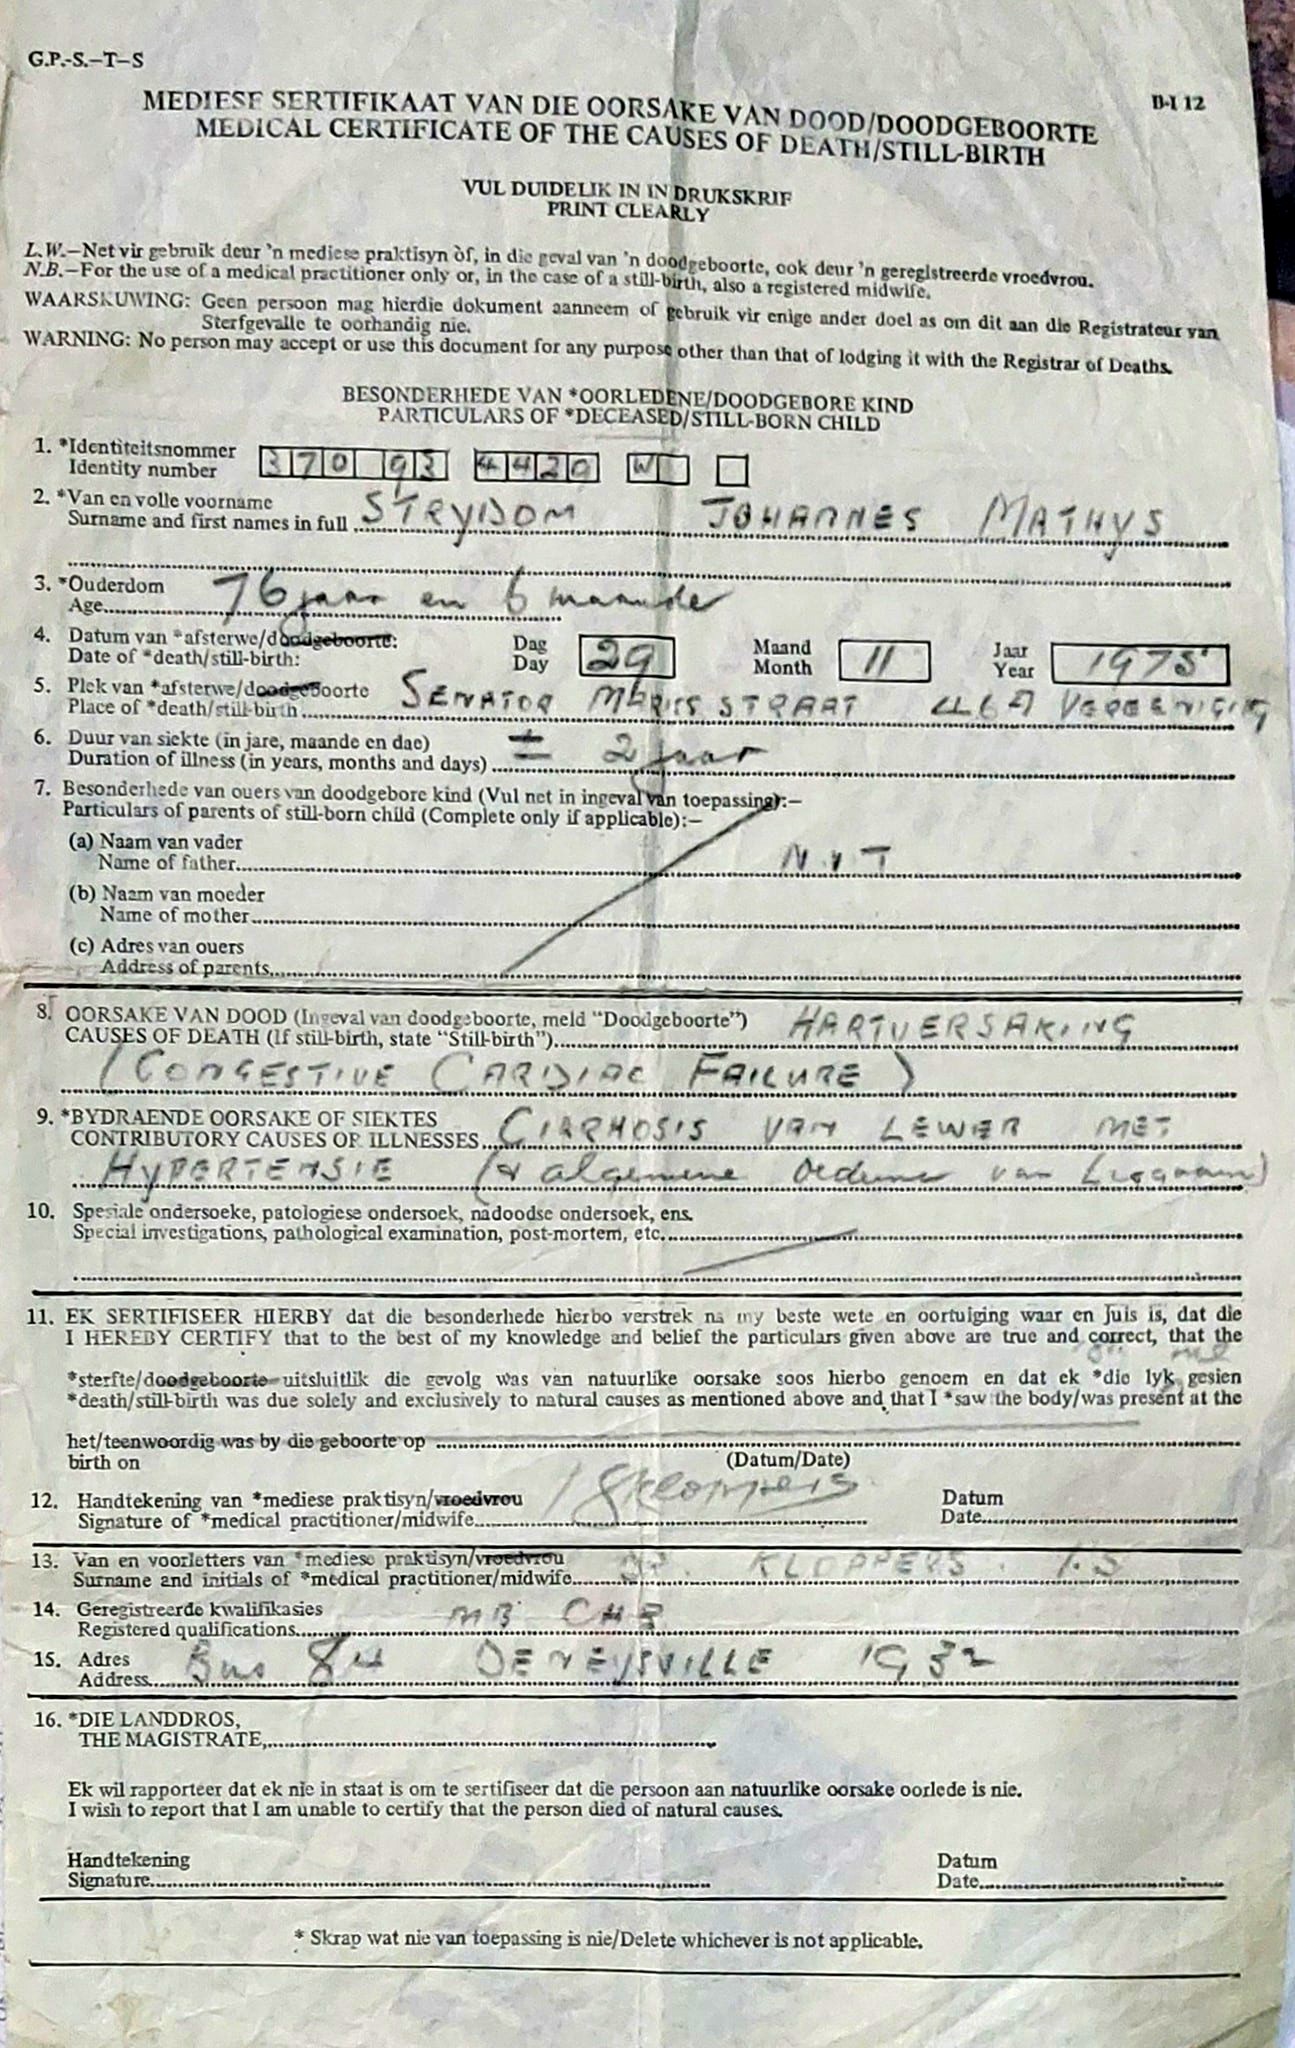 G.P.-S.-T-S
B-I 12
MEDIESE SERTIFIKAAT VAN DIE OORSAKE VAN DOOD/DOODGEBOORTE
MEDICAL CERTIFICATE OF THE CAUSES OF DEATH/STILL-BIRTH
VUL DUIDELIK IN IN DRUKSKRIF
PRINT CLEARLY
L.W.—Net vir gebruik deur 'n mediese praktisyn òf, in die geval van 'n doodgeboorte, ook deur 'n geregistreerde vroedvrou.
N.B.—For the use of a medical practitioner only or, in the case of a still-birth, also a registered midwife.
WAARSKUWING: Geen persoon mag hierdie dokument aanneem of gebruik vir enige ander doel as om dit aan die Registrateur van
Sterfgevalle te oorhandig nie.
WARNING: No person may accept or use this document for any purpose other than that of lodging it with the Registrar of Deaths.
BESONDERHEDE VAN *OORLEDENE/DOODGEBORE KIND
PARTICULARS OF *DECEASED/STILL-BORN CHILD
1. *Identiteitsnommer
Identity number 370 93 4420 W
2. *Van en volle voorname
Surname and first names in full STRYDOM JOHANNES MATHYS
3. *Ouderdom
Age 76 jaar en 6 maande
4. Datum van *afsterwe/doodgeboorte: Dag 29 Maand 11 Jaar 1975
Date of *death/still-birth: Day Month Year
5. Plek van *afsterwe/doodgeboorte
Place of *death/still-birth SENATOR MARKS STRAAT VEREENIGING
6. Duur van siekte (in jare, maande en dae)
Duration of illness (in years, months and days) ± 2 jaar
7. Besonderhede van ouers van doodgebore kind (Vul net in ingeval van toepassing):—
Particulars of parents of still-born child (Complete only if applicable):—
(a) Naam van vader
Name of father N.V.T
(b) Naam van moeder
Name of mother
(c) Adres van ouers
Address of parents
8. OORSAKE VAN DOOD (Ingeval van doodgeboorte, meld "Doodgeboorte")
CAUSES OF DEATH (If still-birth, state "Still-birth") HARTVERSAKING
(CONGESTIVE CARDIAC FAILURE)
9. *BYDRAENDE OORSAKE OF SIEKTES
CONTRIBUTORY CAUSES OR ILLNESSES CIRRHOSIS VAN LEWER MET
HYPERTENSIE (& algemene oedeme van Liggaam)
10. Spesiale ondersoeke, patologiese ondersoek, nadoodse ondersoek, ens.
Special investigations, pathological examination, post-mortem, etc.
11. EK SERTIFISEER HIERBY dat die besonderhede hierbo verstrek na my beste wete en oortuiging waar en juis is, dat die
I HEREBY CERTIFY that to the best of my knowledge and belief the particulars given above are true and correct, that the
*sterfte/doodgeboorte uitsluitlik die gevolg was van natuurlike oorsake soos hierbo genoem en dat ek *die lyk gesien
*death/still-birth was due solely and exclusively to natural causes as mentioned above and that I *saw the body/was present at the
het/teenwoordig was by die geboorte op
birth on
(Datum/Date)
12. Handtekening van *mediese praktisyn/vroedvrou Datum
Signature of *medical practitioner/midwife Kloppers Date
13. Van en voorletters van *mediese praktisyn/vroedvrou
Surname and initials of *medical practitioner/midwife DR. KLOPPERS. I.S
14. Geregistreerde kwalifikasies
Registered qualifications MB CHB
15. Adres
Address Bus 84 DENEYSVILLE 1932
16. *DIE LANDDROS,
THE MAGISTRATE,
Ek wil rapporteer dat ek nie in staat is om te sertifiseer dat die persoon aan natuurlike oorsake oorlede is nie.
I wish to report that I am unable to certify that the person died of natural causes.
Handtekening Datum
Signature Date
* Skrap wat nie van toepassing is nie/Delete whichever is not applicable.